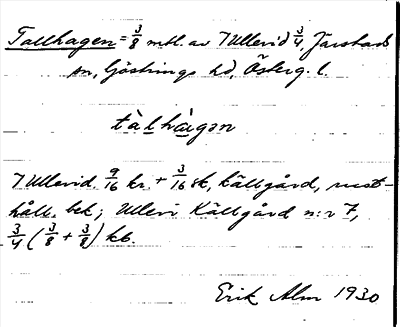 Tallhagen = 3/8 mtl. av 7 Ullevid 3/4, Järstads
sn, Göstrings hd, Österg. l.
tàlhà̀gən
7 Ullevid. 9/16 kr. + 3/16 sk, källgård, rust-
håll. bek; Ullevi Källgård n:r 7,
3/4 (3/8 + 3/8) kb.
Erik Alm 1930